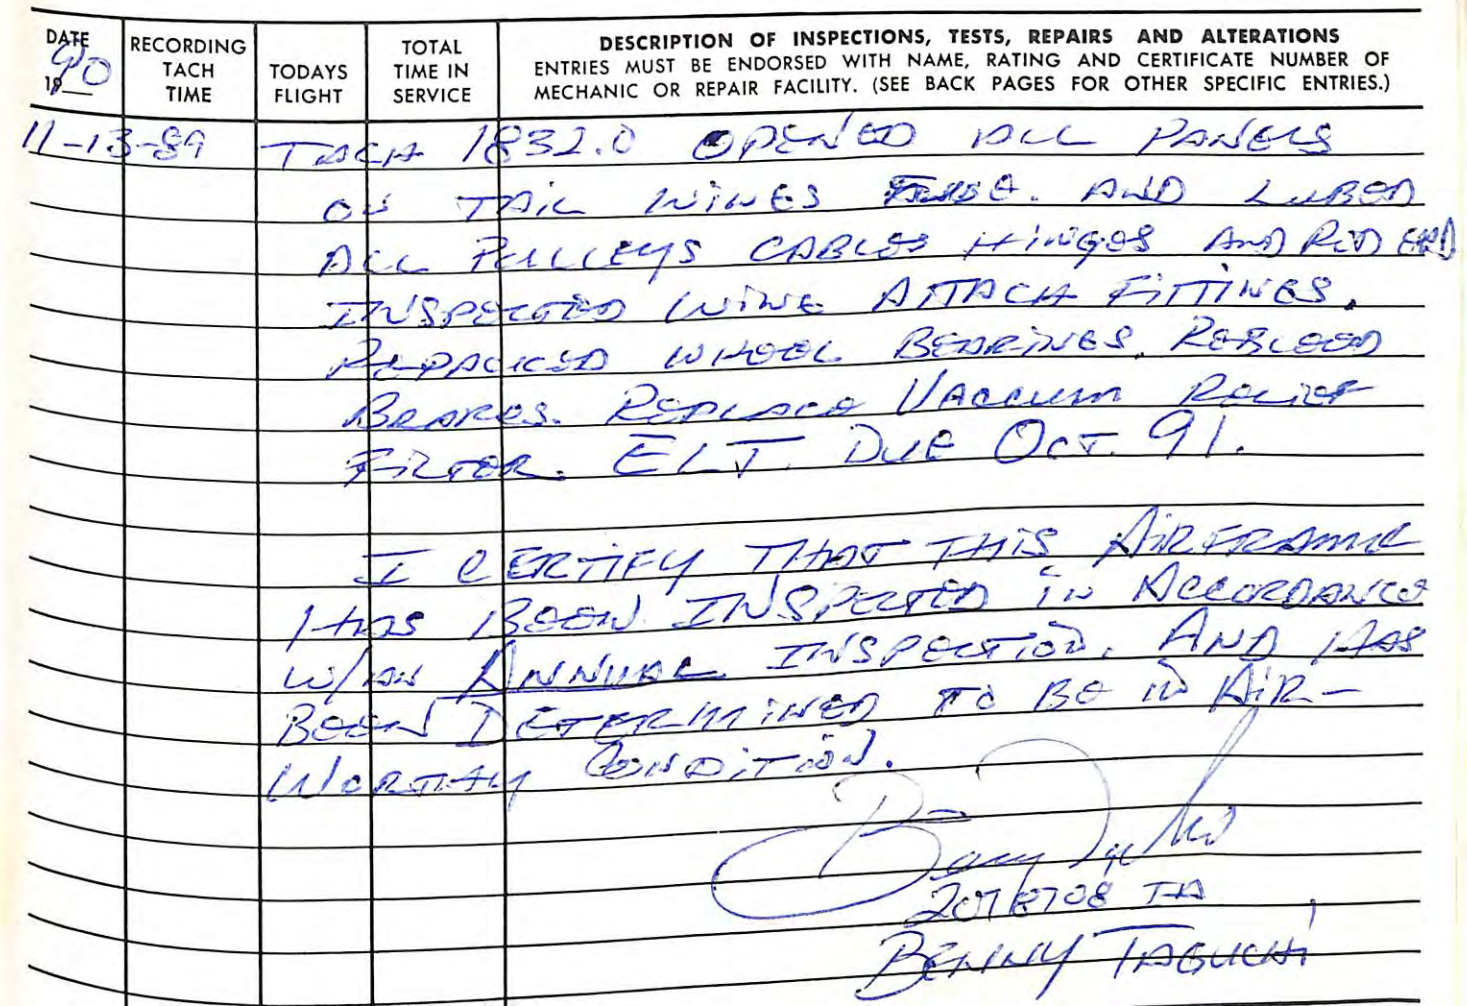 DATE
1990
RECORDING
TACH
TIME
TODAYS
FLIGHT
TOTAL
TIME IN
SERVICE
DESCRIPTION OF INSPECTIONS, TESTS, REPAIRS AND ALTERATIONS
ENTRIES MUST BE ENDORSED WITH NAME, RATING AND CERTIFICATE NUMBER OF
MECHANIC OR REPAIR FACILITY. (SEE BACK PAGES FOR OTHER SPECIFIC ENTRIES.)
11-13-89 TACH 1832.0 OPENED ALL PANELS
ON TAIL WINGS FUSE. AND LUBED
ALL PULLEYS CABLES HINGES AND ROD END
INSPECTED WING ATTACH FITTINGS.
REPACKED WHEEL BEARINGS. REBLEED
BRAKES. REPLACE VACCUM RELIEF
FILTER. ELT. DUE OCT. 91.
I CERTIFY THAT THIS AIRFRAME
HAS BEEN INSPECTED IN ACCORDANCE
W/AN ANNUAL INSPECTION. AND HAS
BEEN DETERMINED TO BE IN AIR-
WORTHY CONDITION.
2078708 IA
BENNY TAGUCHI